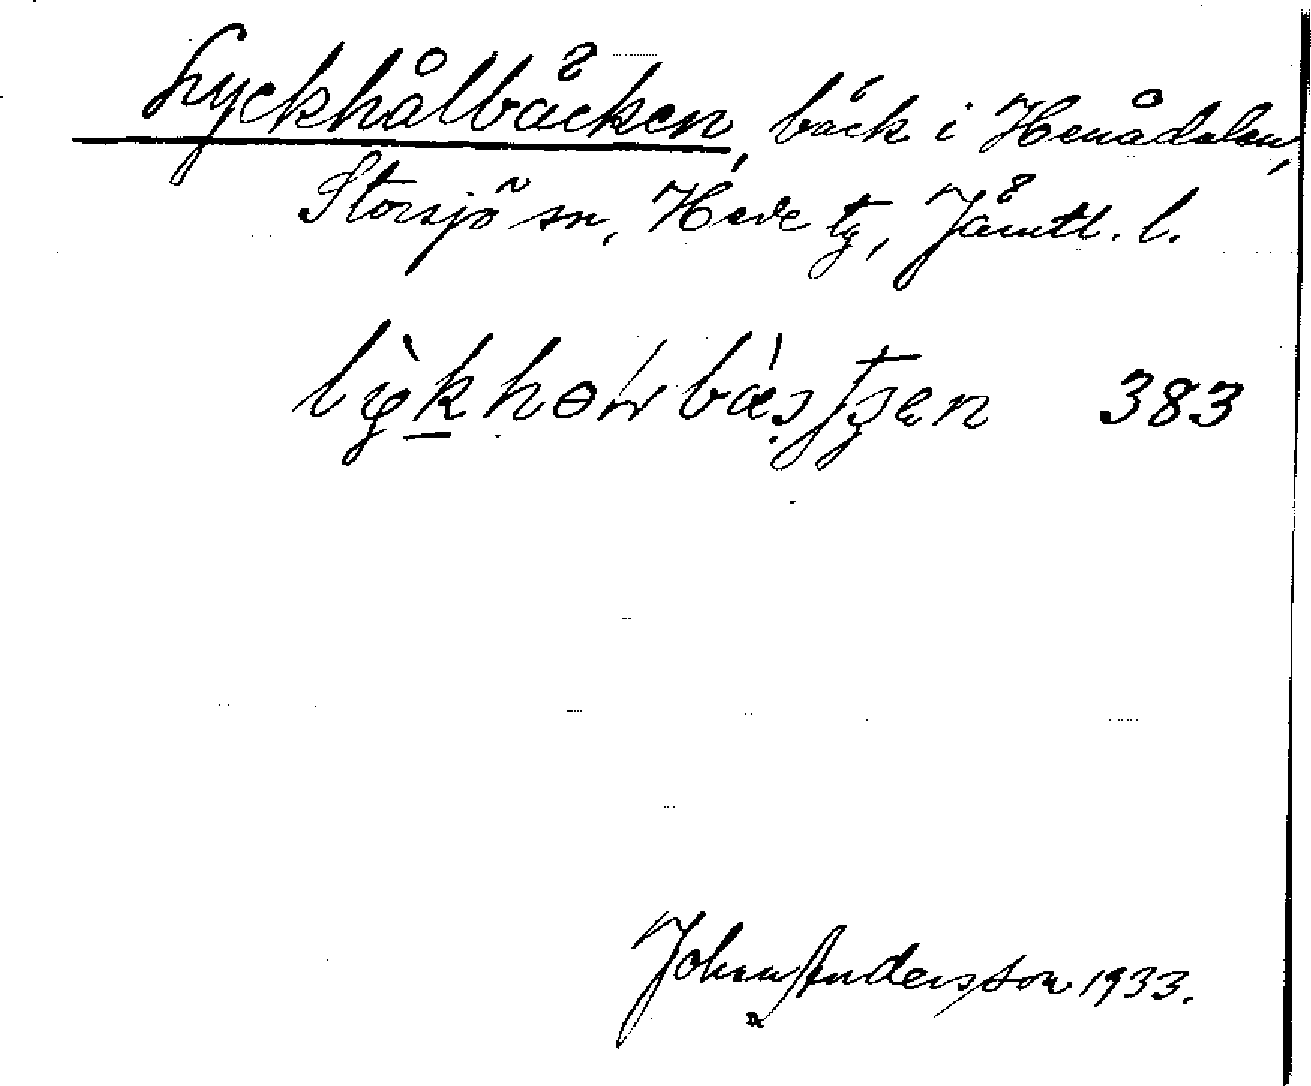 Lyckhålbäcken, bäck i Henådalen,
Storsjö sn, Hede tg, Jämtl. l.
383
Johan Andersson 1933.